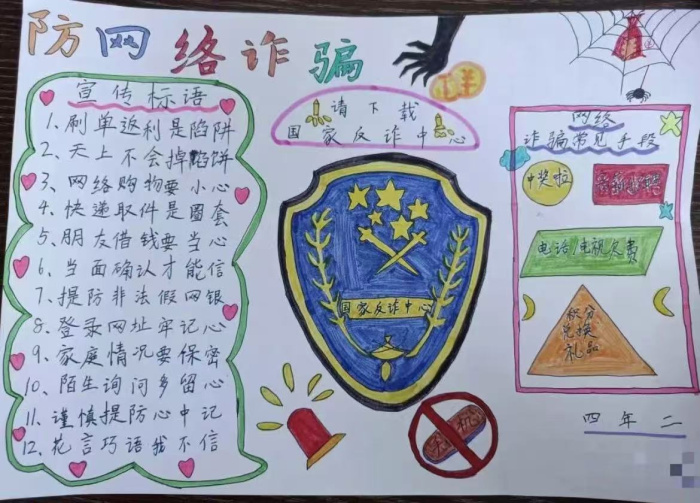 防网络诈骗
宣传标语
1、刷单返利是陷阱
2、天上不会掉馅饼
3、网络购物要小心
4、快递取件是圈套
5、朋友借钱要当心
6、当面确认才能信
7、提防非法假网银
8、登录网址牢记心
9、家庭情况要保密
10、陌生询问多留心
11、谨慎提防心中记
12、花言巧语我不信
请下载
国家反诈中心
国家反诈中心
网络
诈骗常见手段
中奖啦
电话/电视欠费
积分
兑换
礼品
四年二